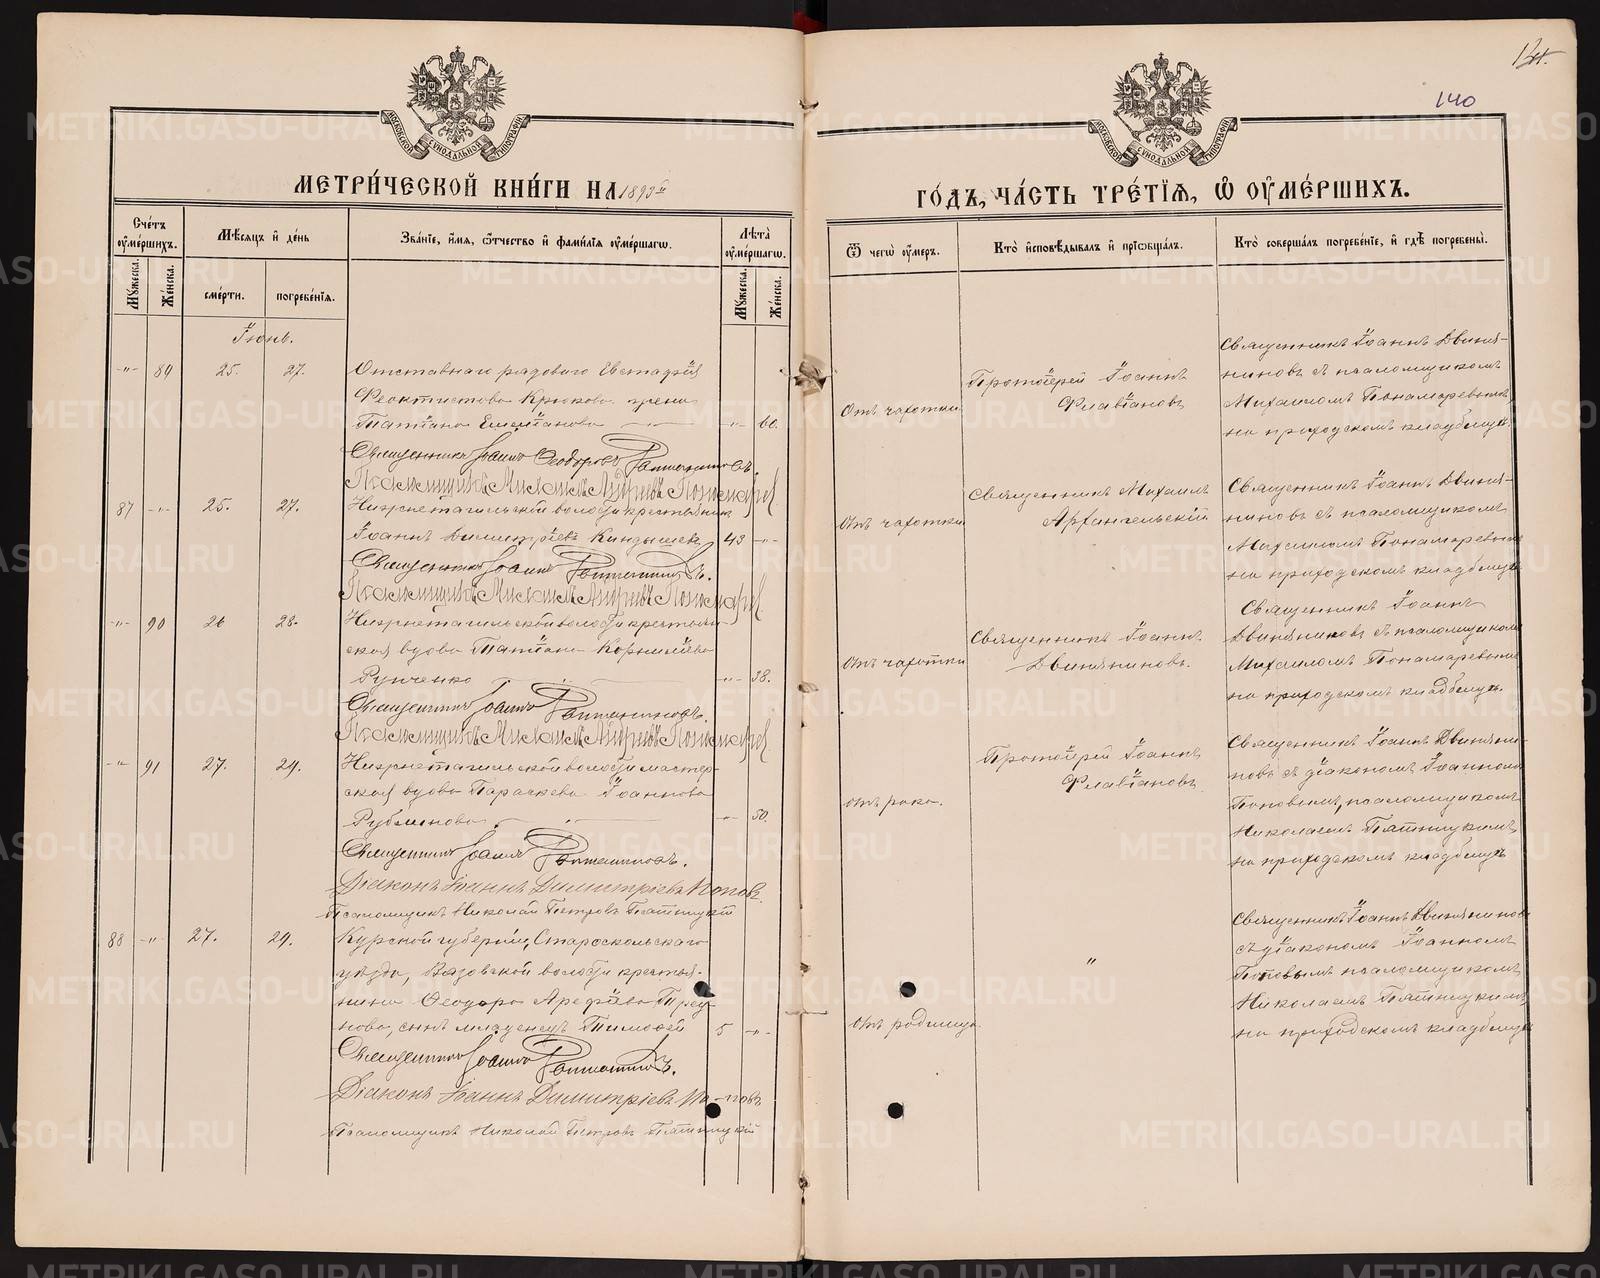 140
МОСКОВСКОЙ СѴНОДАЛЬНОЙ ТИПОГРАФІИ
МОСКОВСКОЙ СѴНОДАЛЬНОЙ ТИПОГРАФІИ
МЕТРИ́ЧЕСКОЙ КНИ́ГИ НА 1893й
ГО́ДЪ, ЧА́СТЬ ТРЕ́ТЇѦ, Ѡ҆ ОУ҆МЕ́РШИХЪ.
Сче́тъ оу҆ме́ршихъ.
Мѣ́сѧцъ и҆ де́нь
Зва́нїе, и҆́мѧ, ѻ҆́тчество и҆ фами́лїѧ оу҆ме́ршагѡ.
Лѣ́та оу҆ме́ршагѡ.
Ѿ чегѡ̀ оу҆́меръ.
Кто̀ и҆сповѣ́дывалъ и҆ прїѡбща́лъ.
Кто̀ соверша́лъ погребе́нїе, и҆ гдѣ̀ погребены̀.
Мꙋ́жеска.
Же́нска.
сме́рти.
погребе́нїѧ.
Мꙋ́жеска.
Же́нска.
Іюнь.
-"- 89 25. 27. Отставнаго рядового Евстафія
Феоктистова Крюкова жена
Татіана Емеліанова -"- 60.
Отъ чахотки
Протоіерей Іоаннъ
Флавіановъ
Священникъ Іоаннъ Двиня-
ниновъ съ псаломщикомъ
Михаиломъ Пономаревымъ
на приходскомъ кладбищѣ
Священникъ Іоаннъ Феодоровъ
Псаломщикъ Михаилъ Андреевъ Пономарев
87 -"- 25. 27. Нижнетагильской волости крестьянинъ
Іоаннъ Димитріевъ Киндышевъ 43 -"-
Отъ чахотки
Священникъ Михаилъ
Архангельскій
Священникъ Іоаннъ Двиня-
ниновъ съ псаломщикомъ
Михаиломъ Пономаревымъ
на приходскомъ кладбищѣ
Священникъ Іоаннъ
Псаломщикъ Михаилъ Андреевъ Пономарев
-"- 90 26 28. Нижнетагильской волости крестьян-
ская вдова Татіана Корнилова
Рунченко -"- 38.
Отъ чахотки
Священникъ Іоаннъ
Двиняниновъ.
Священникъ Іоаннъ
Двиняниновъ съ псаломщикомъ
Михаиломъ Пономаревымъ
на приходскомъ кладбищѣ.
Священникъ Іоаннъ
Псаломщикъ Михаилъ Андреевъ Пономарев
-"- 91 27. 29. Нижнетагильской волости мастер-
ская вдова Параскева Іоаннова
Рублинова -"- 50.
отъ рака.
Протоіерей Іоаннъ
Флавіановъ
Священникъ Іоаннъ Двиняни-
новъ съ діакономъ Іоанномъ
Поповымъ, псаломщикомъ
Николаемъ Пятницкимъ
на приходскомъ кладбищѣ
Священникъ Іоаннъ
Діаконъ Іоаннъ Димитріевъ Поповъ.
Псаломщикъ Николай Петровъ Пятницкій
88 -"- 27. 29. Курской губерніи, Староскольскаго
уѣзда, Вязовской волости крестья-
нина Феодора Арефіева
сынъ младенецъ Тимофей 5 -"-
отъ родимца
"
Священникъ Іоаннъ Двиняниновъ
съ діакономъ Іоанномъ
Поповымъ псаломщикомъ
Николаемъ Пятницкимъ
на приходскомъ кладбищѣ
Священникъ Іоаннъ
Діаконъ Іоаннъ Димитріевъ Поповъ
Псаломщикъ Николай Петровъ Пятницкій
METRIKI.GASO-URAL.RU